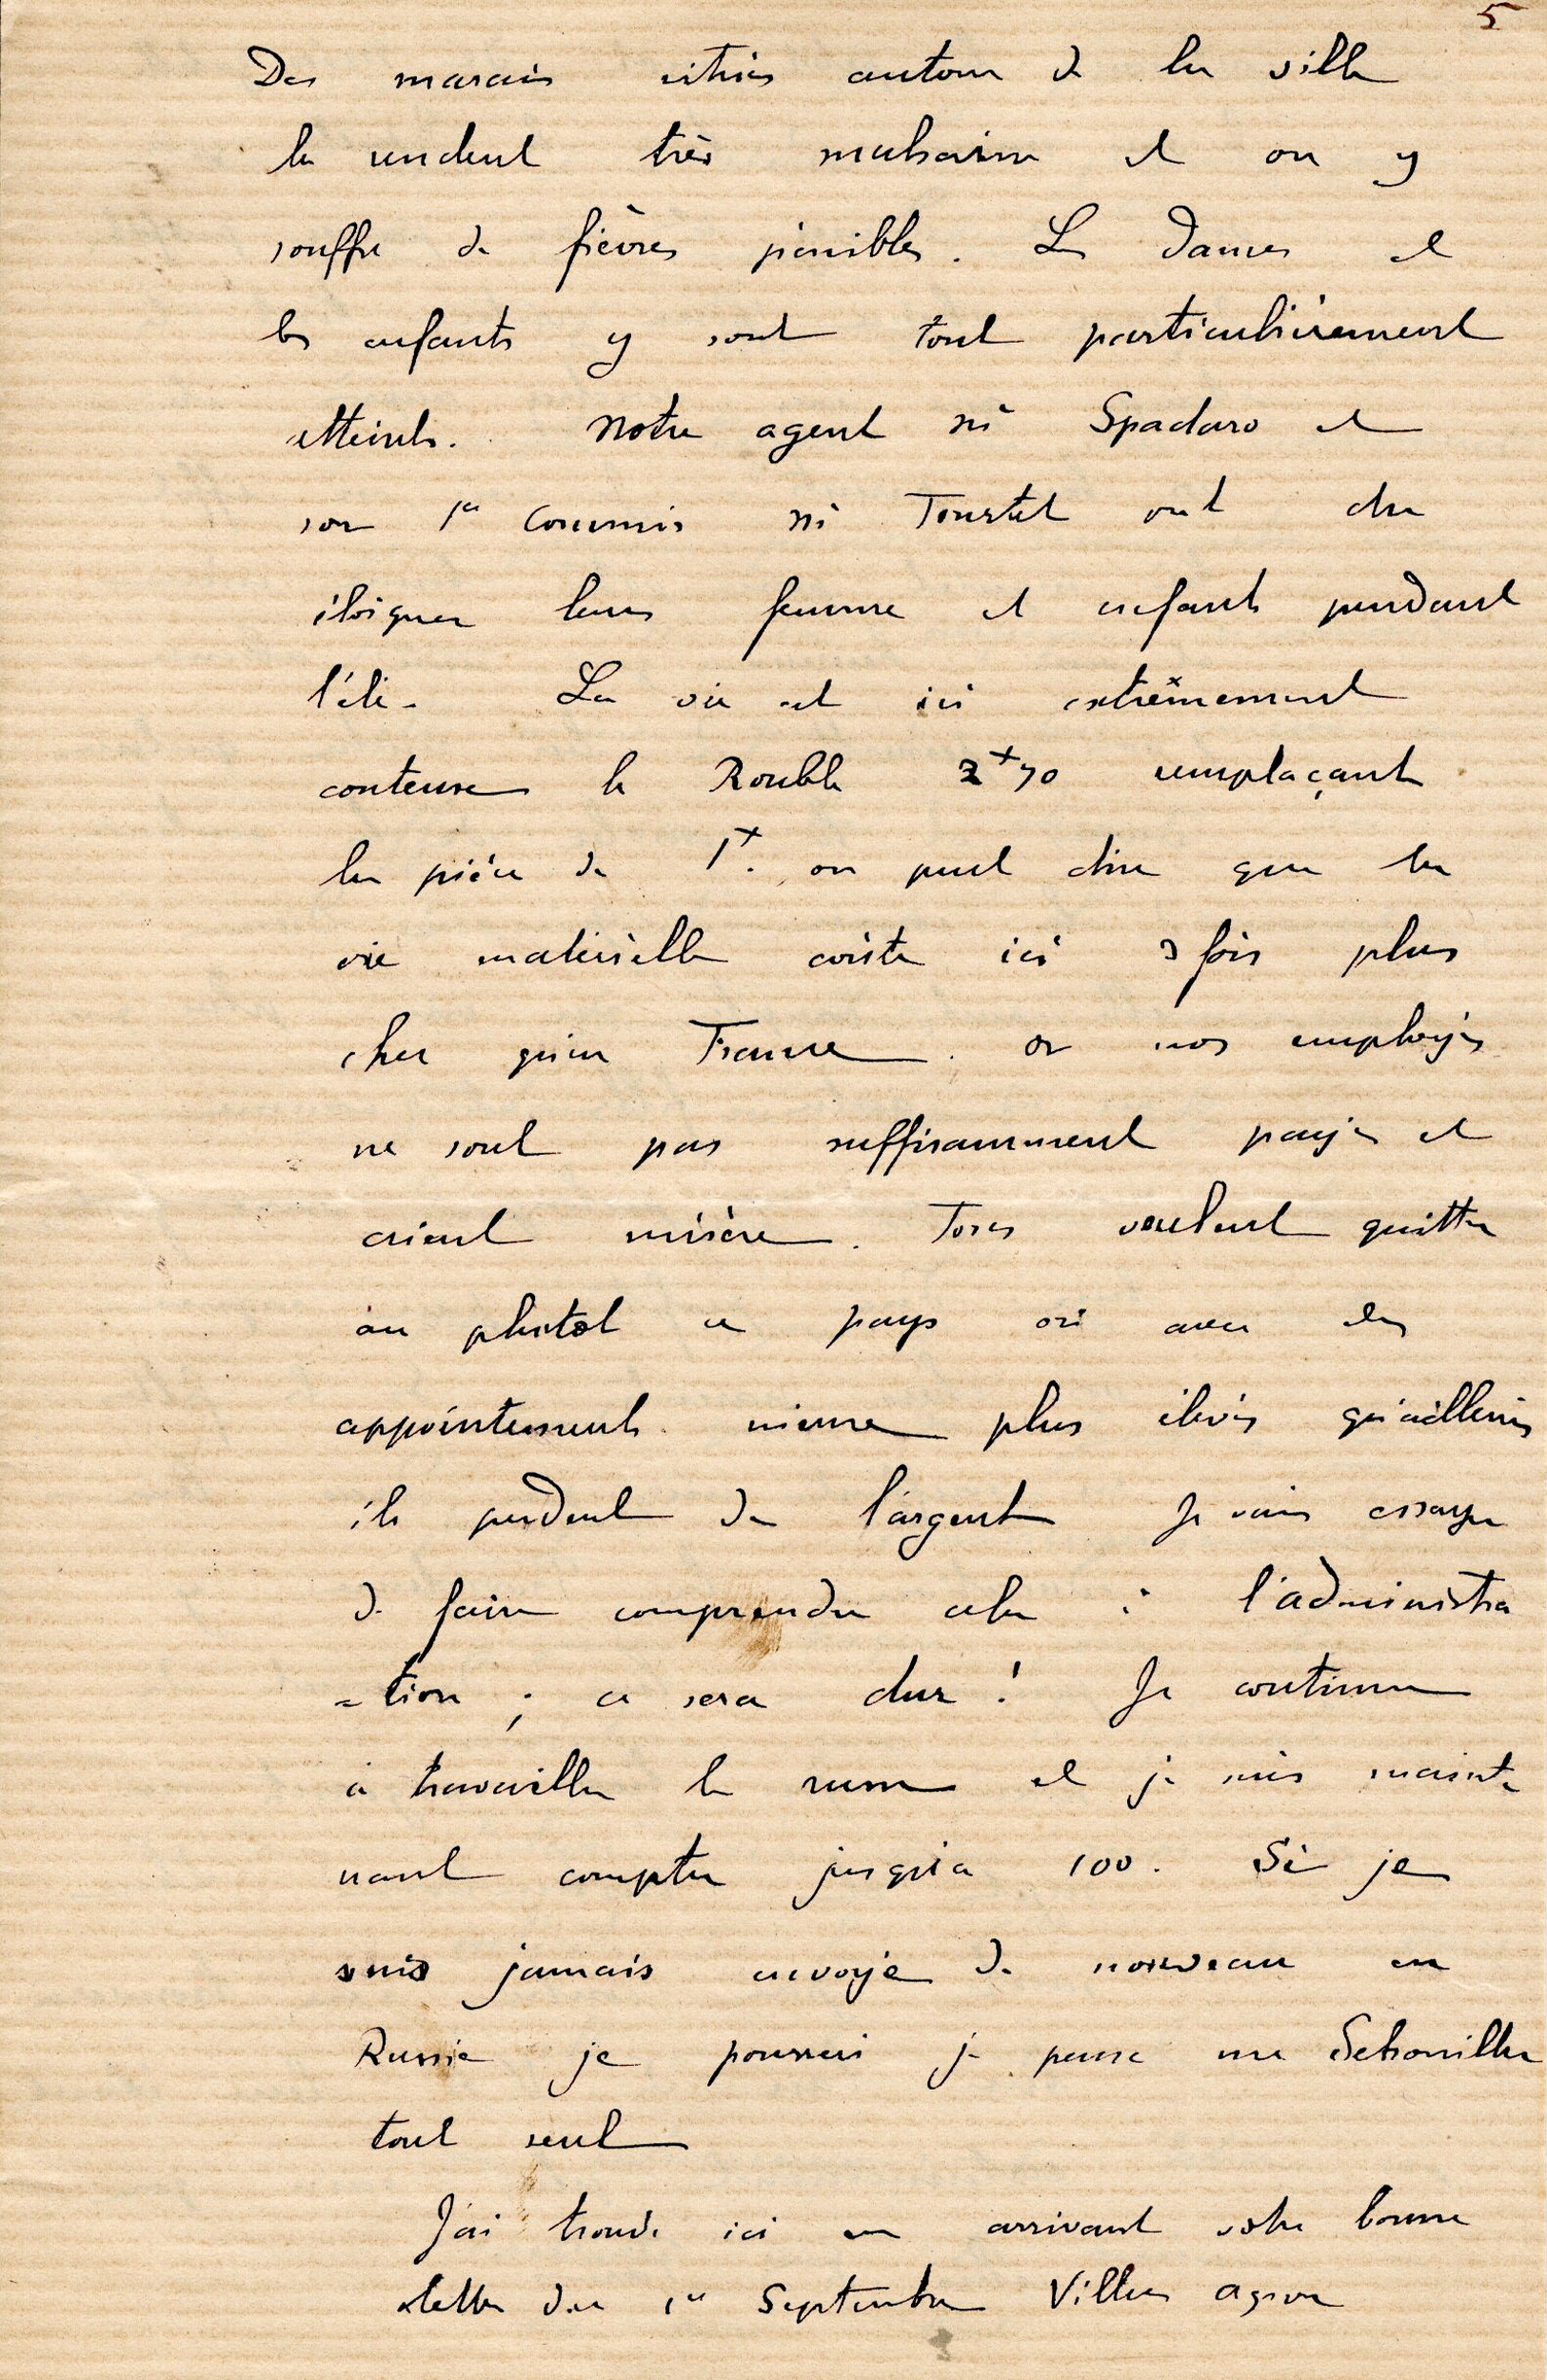 5
Des marais situés autour de la ville
la rendent très malsaine et on y
souffre de fièvres pénibles. Les Dames et
les enfants y sont tout particulièrement
atteints. Notre agent né Spadaro et
son 1er commis né Toustet ont du
éloigner leurs femme et enfants pendant
l'été. La vie est ici extrêmement
couteuse le Rouble 2f70 remplaçant
la pièce de 1f. on peut dire que la
vie matérielle coûte ici 3 fois plus
cher qu'en France. or nos employés
ne sont pas suffisamment payés et
crient misère. Tous veulent quitter
au plutot ce pays où avec des
appointements meme plus élevés qu'ailleurs
ils perdent de l'argent Je vais essayer
de faire comprendre cela à l'administra
=tion ; ce sera dur ! Je continue
à travailler le russe et je sais mainte
nant compter jusqu'a 100. Si je
suis jamais envoyé de nouveau en
Russie je pourrai je pense me Debrouiller
tout seul
J'ai trouvé ici en arrivant votre bonne
lettre du 1er Septembre Villers